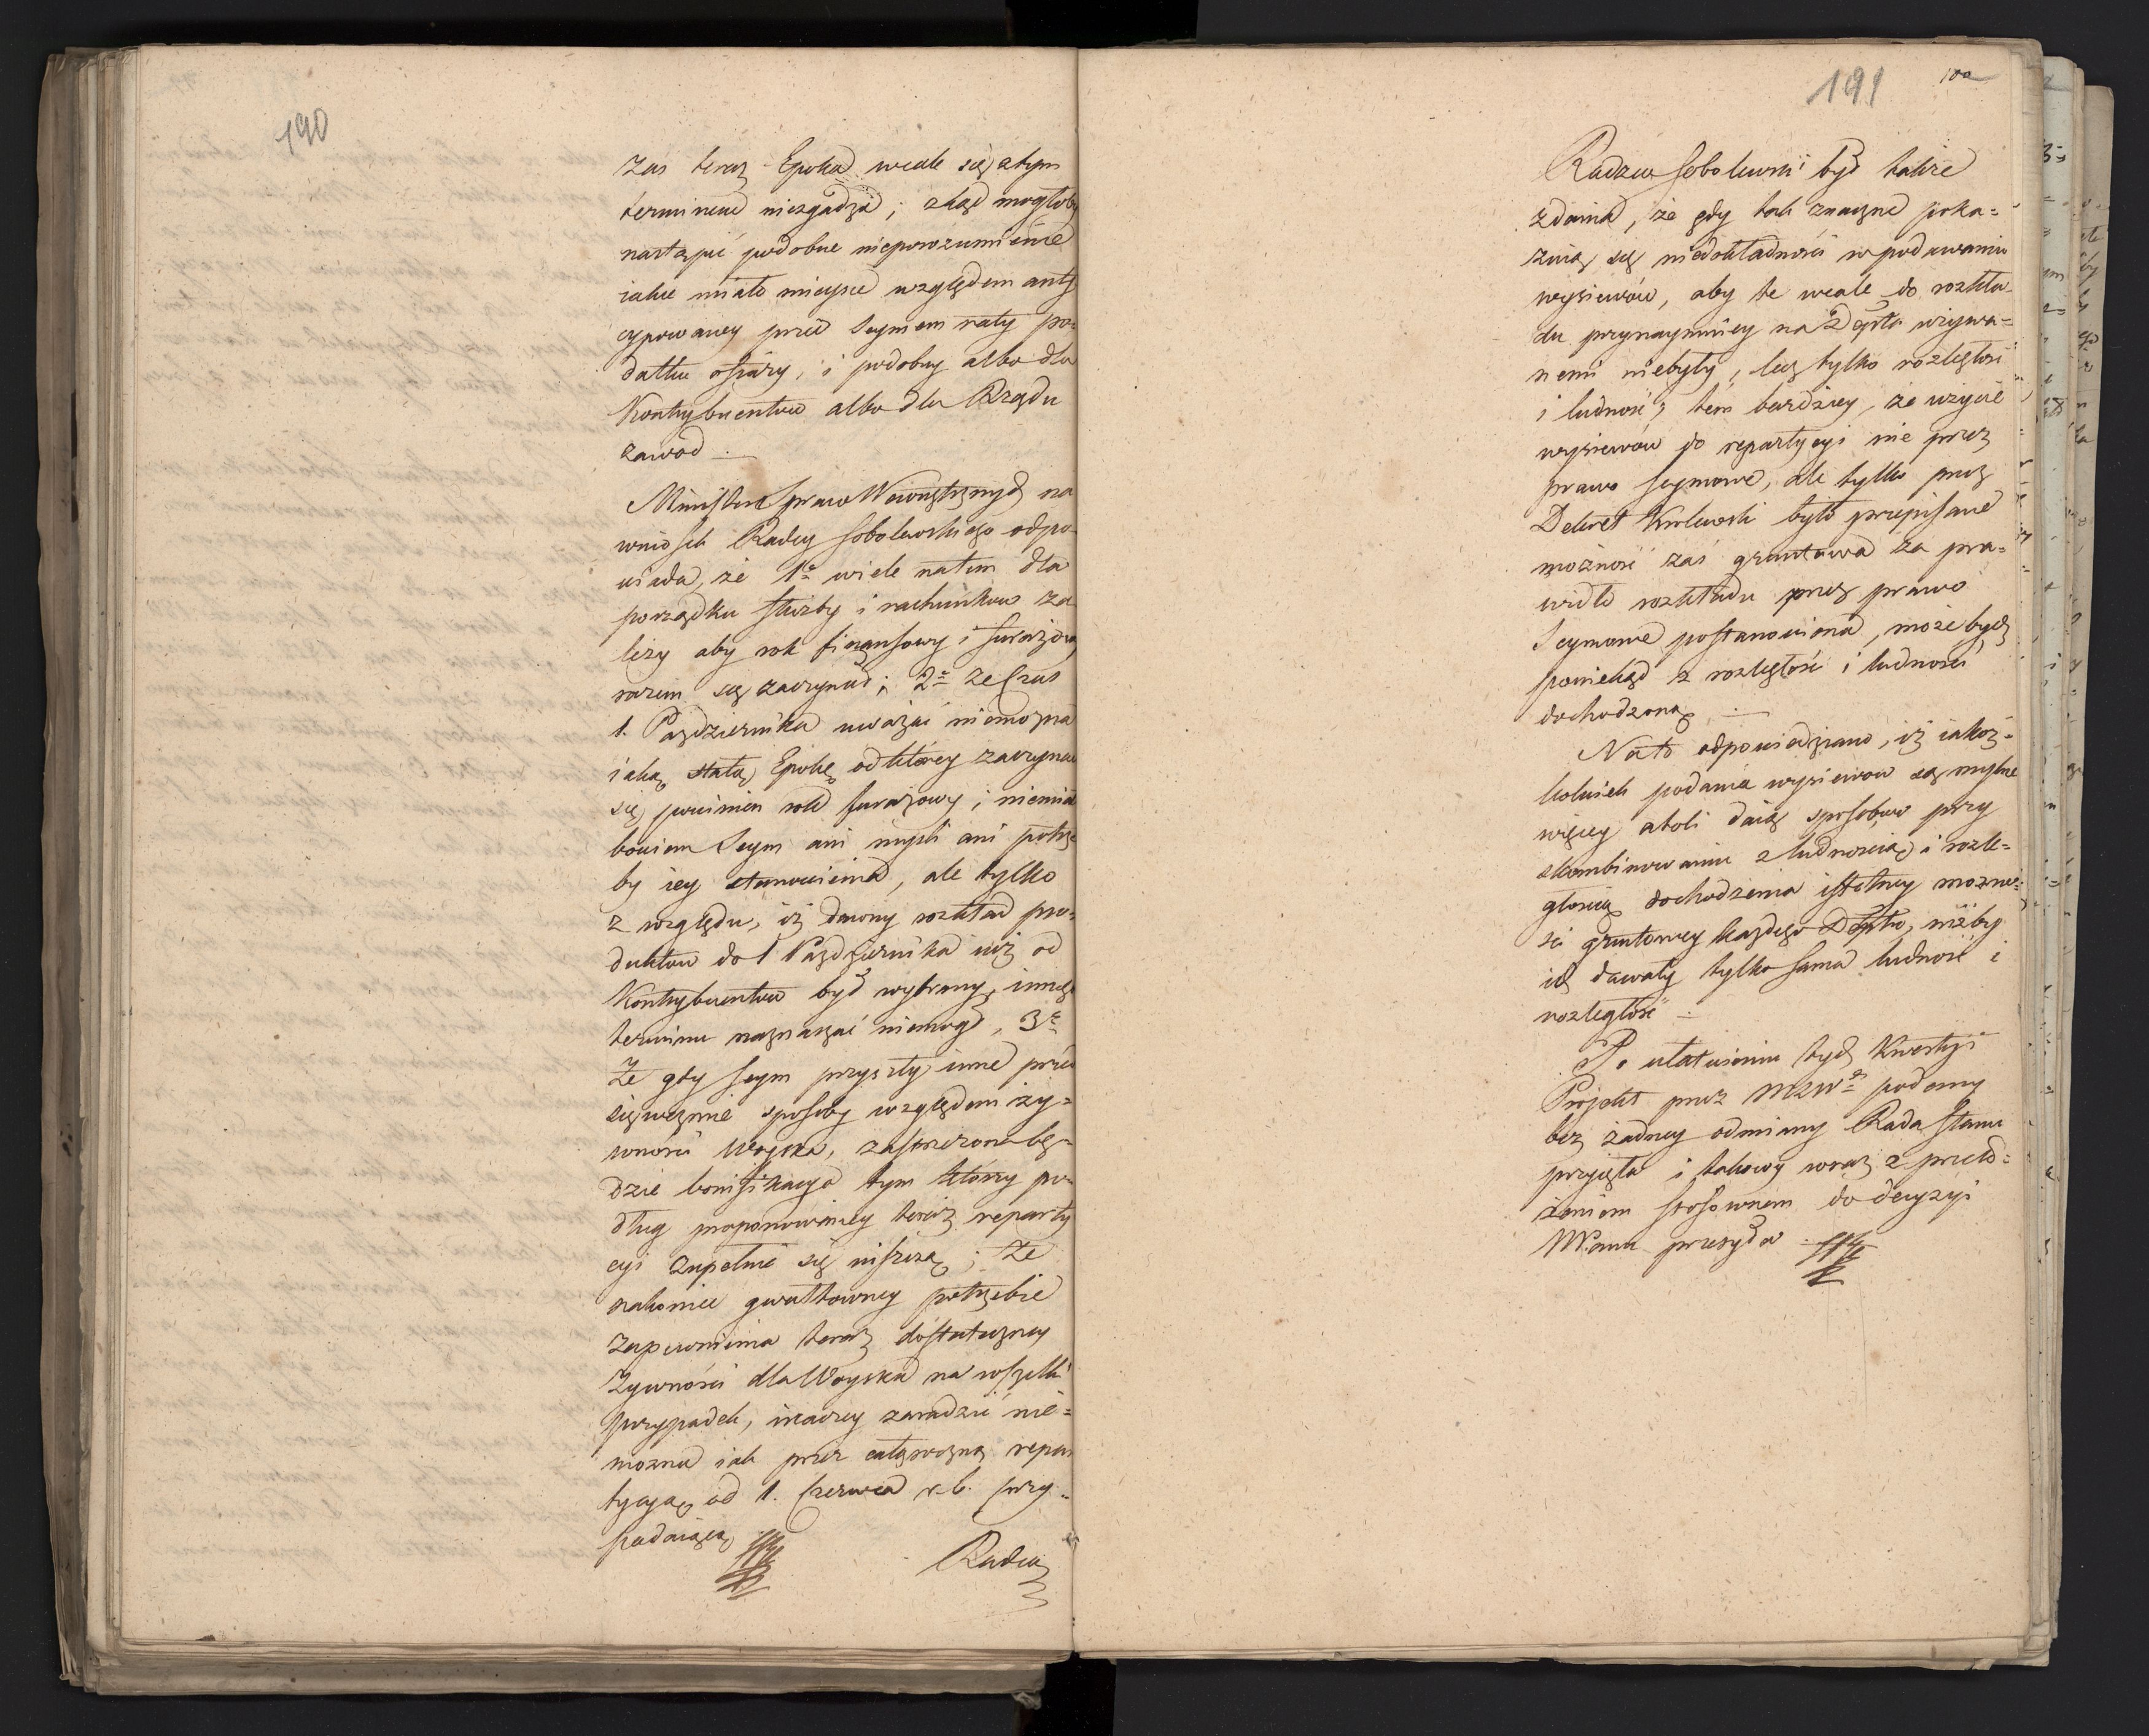 190
zas teraz Epoka wcale się z tym
terminem niezgadza; zkąd mogłoby
nastąpić podobne nieporozumienie
iakie miało mieysce względem anty
cypowaney przed Seymem raty po=
datku ofiary, i podobny albo dla
Kontrybuentow albo dla Rządu
zawod.
Minister Spraw Wewnętrznych na
wniosek Radcy Sobolewskiego odpo
wiada, że 1e wiele na tem dla
porządku służby i rachunkow za
leży aby rok finansowy i furażowy
razem się zaczynał; 2e Ze Czas
1. Pazdziernika uważać niemożna
iako stałą Epokę od ktorey zaczynać
się powinien rok furażowy; niemiał
bowiem Seym ani myśli ani potrze
by iey stanowienia, ale tylko
z względu, iż dawny rozkład pro=
duktow do 1 Pazdziernika iuż od
Kontrybuentow był wybrany, innego
terminu naznaczać niemogł, 3e
Że gdy Seym przyszły inne przed
sięweźmie sposoby względem ży=
wności Woyska, zastrzeżona bę=
dzie bonifikacya tym ktorzy po=
dług proponowaney teraz reparty
cyi zupełnie się uiszczą; Że
nakoniec gwałtowney potrzebie
zapewnienia teraz dostateczney
Żywności dla Woyska na wszelki
przypadek, inaczey zaradzić nie=
można iak przez całoroczną repar
tycyą od 1. Czerwca r. b. przy=
padaiącą
Radca
191
100
Radca Sobolewski był także
zdania, że gdy tak znaczne poka=
zuią się niedokładności w podawaniu
wysiewow, aby te wcale do rozkła
du przynaymniey na Depta używa=
nemi niebyły, lecz tylko rozległość
i ludność; tem bardziey, że użycie
wysiewow do repartycyi nie przez
prawo Seymowe, ale tylko przez
Dekret Krolewski było przepisane
możność zaś gruntowa za pra=
widło rozkładu przez prawo
Seymowe postanowiona, może bydź
poniekąd z rozległości i ludności
dochodzoną.
Na to odpowiedziano, iż iakoż=
kolwiek podania wysiewow są mylne
więcey atoli daią sposobow przy
skombinowaniu z ludnością i rozle=
głością dochodzenia istotney możno=
ści gruntowey każdego Deptu, niżby
ich dawały tylko sama ludność i
rozległość.
Po ułatwieniu tych Kwestyi
Projekt przez MSWch podany
bez żadney odmiany Rada Stanu
przyięła i takowy wraz z przeło=
żeniem stosownem do decyzyi
NPana przesyła.